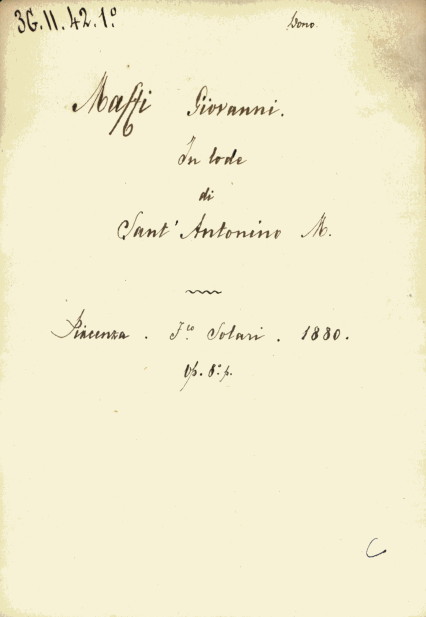 3G.II.42.1°
Dono.
Maffi Giovanni.
In lode
di
Sant' Antonino M.
Piacenza . F.co Solari . 1880.
Op. 8.° p.
C